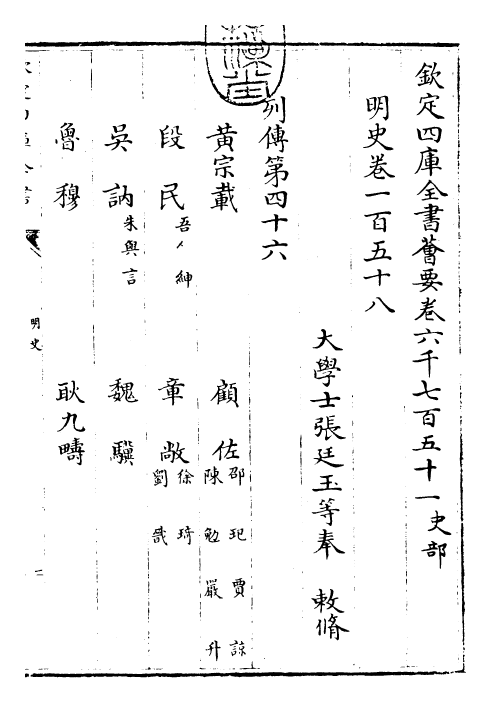 欽定四庫全書薈要卷六千七百五十一史部
明史卷一百五十八
大學士張廷玉等奉 敕脩
列傳第四十六
黃宗載 顧佐 邵玘 賈諒 陳勉 嚴升
段民 吾紳 章敞 徐琦 劉戩
吳訥 朱與言 魏驥
魯穆 耿九疇
明史